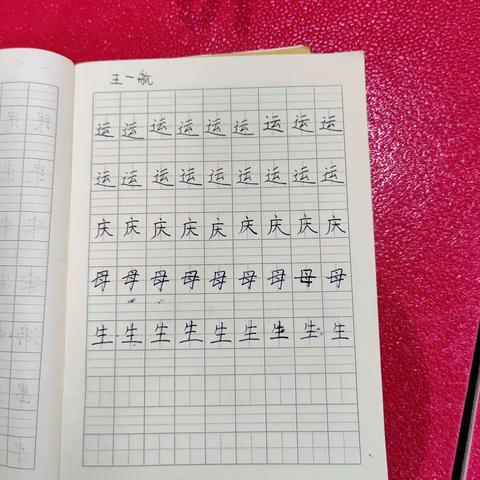 王一航
运运运运运运运运运
运运运运运运运运运
庆庆庆庆庆庆庆庆庆
母母母母母母母母母
生生生生生生生生生